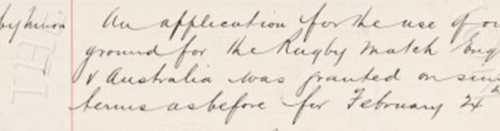 An application for the use of our
ground for the Rugby Match Eng
v Australia was granted on sim
terms as before for February 24